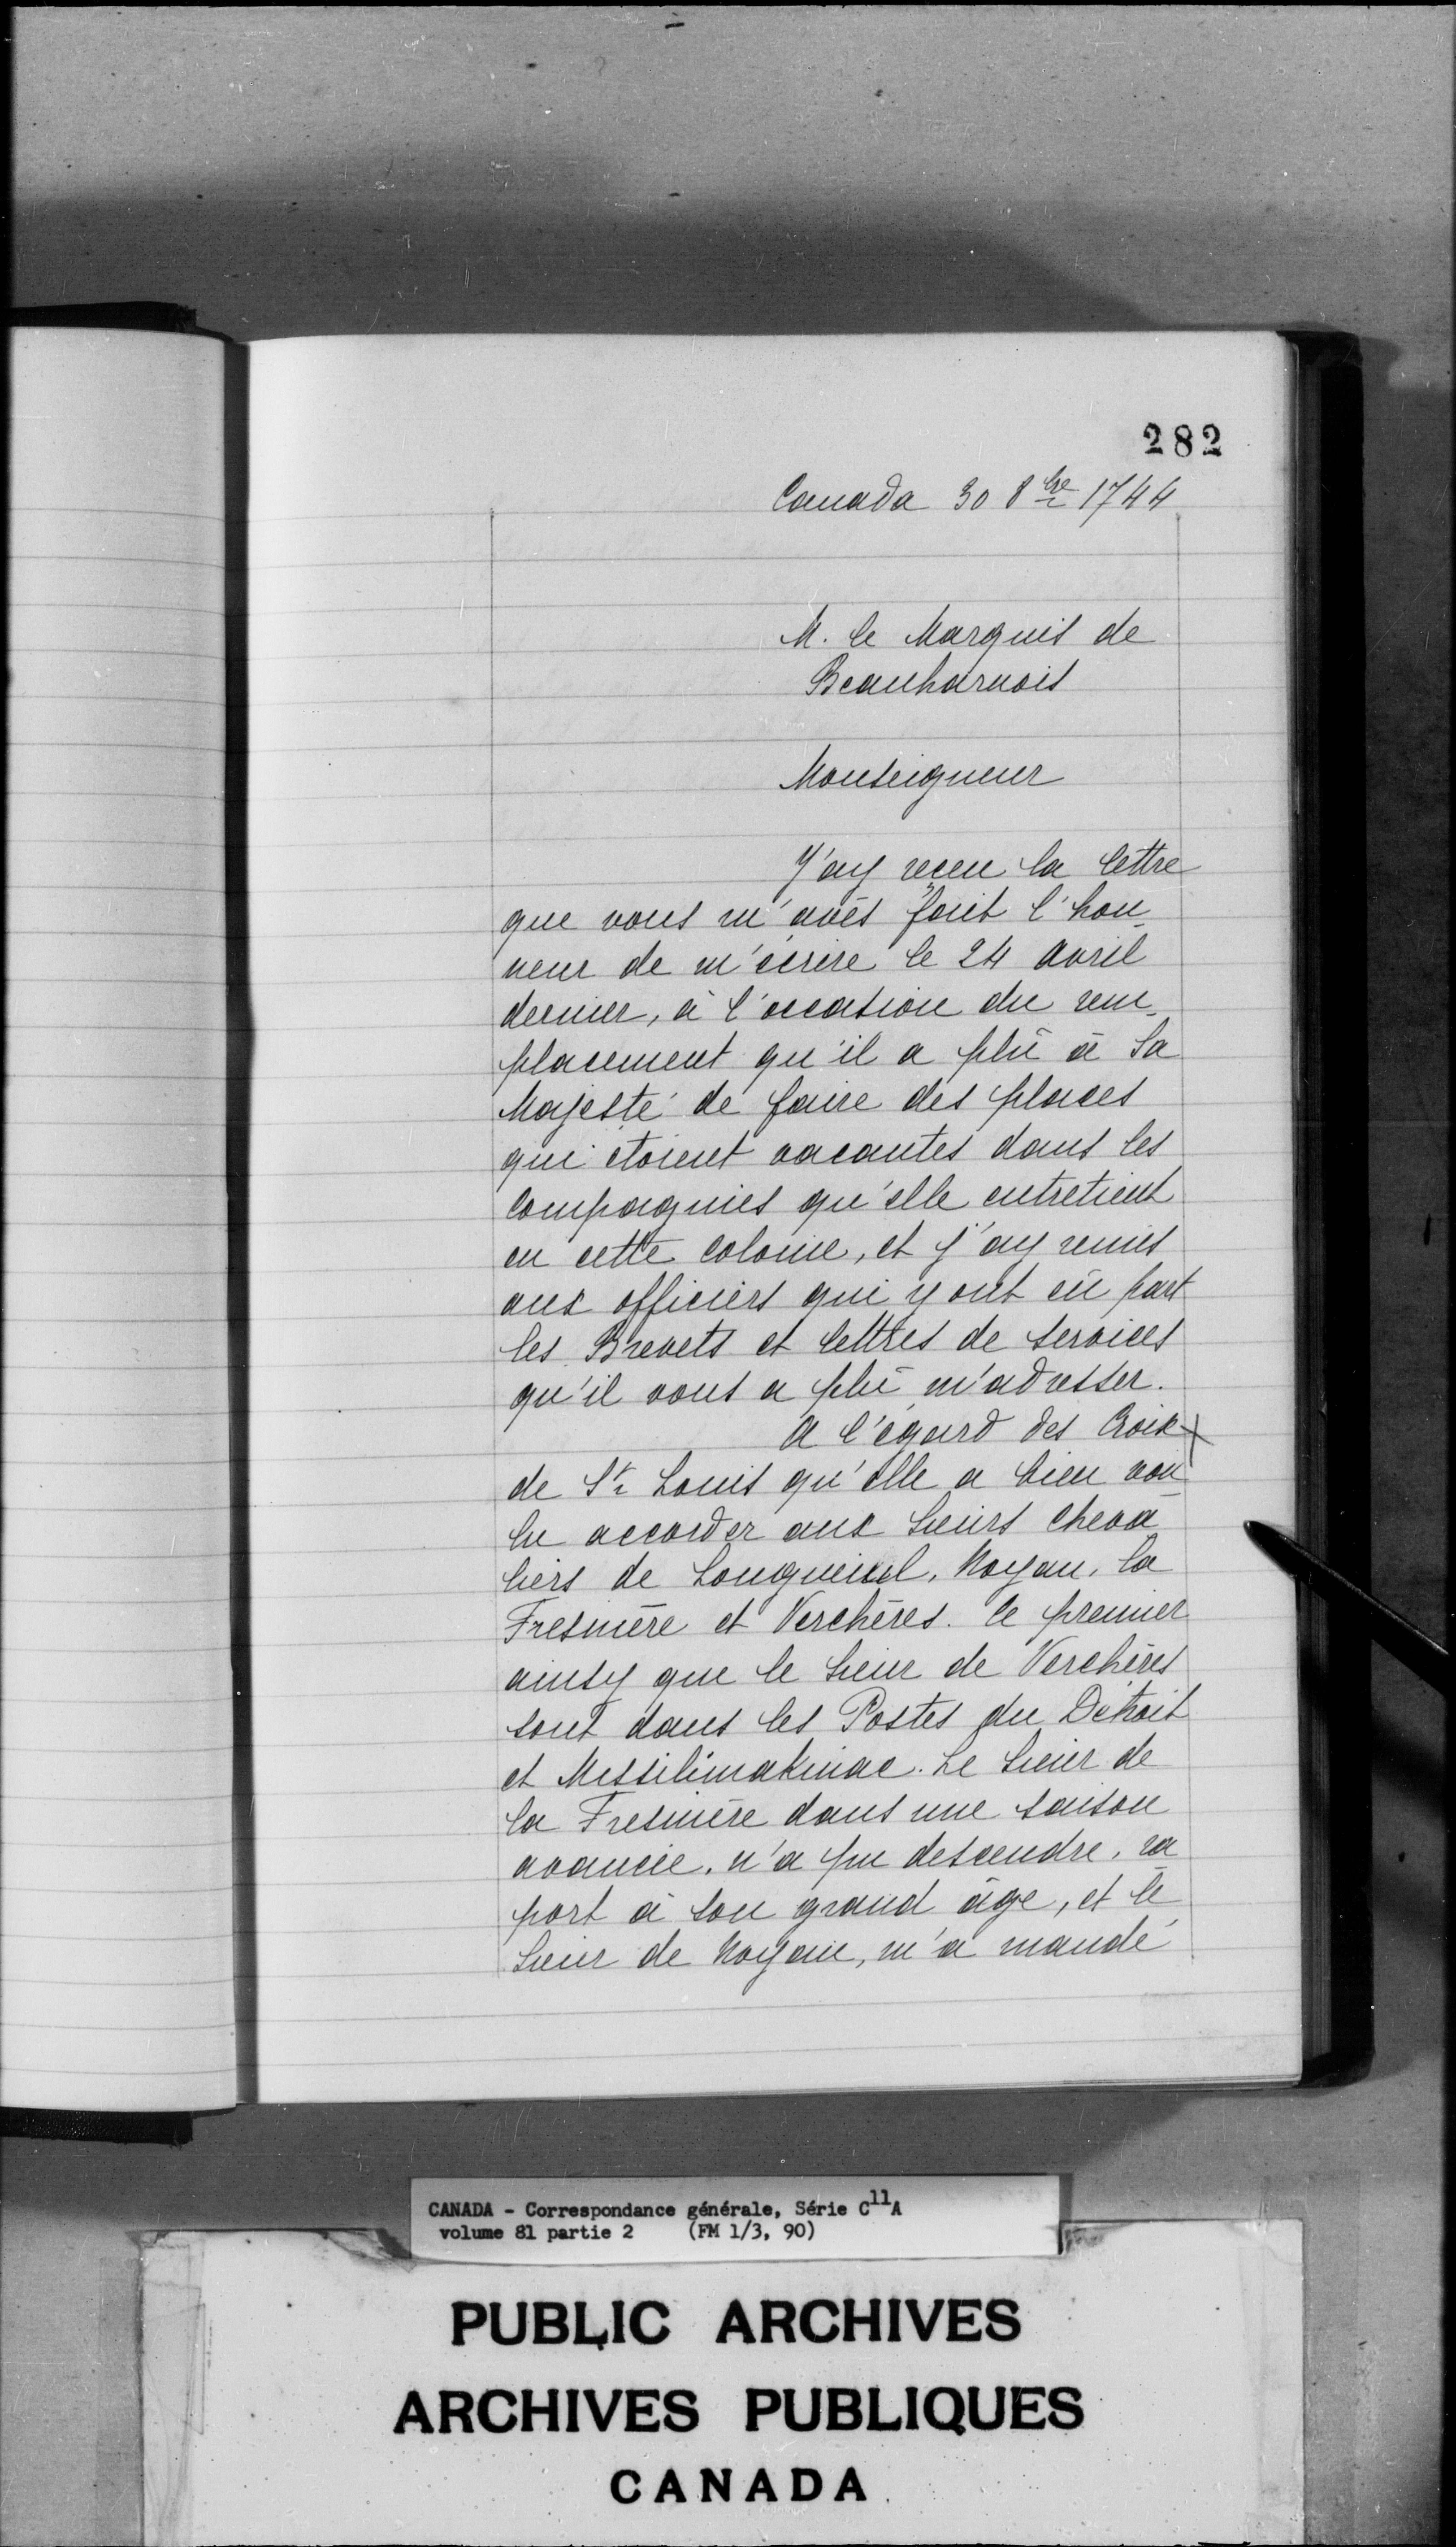 282
Canada 30 8bre 1744
M. le Marquis de
Beauharnois
Monseigneur
J'ay receu la lettre
que vous m'avés fait l'hon-
neur de m'écrire le 24 avril
dernier, à l'occasion du rem-
placement qu'il a plû à Sa
Majesté de faire des places
qui étoient vacantes dans les
Compagnies qu'elle entretient
en cette colonie, et j'ay remis
aux officiers qui y ont eü part
les Brevets et lettres de services
qu'il vous a plû m'adresser.
A l'égard des Croix
de St Louis qu'elle a bien vou-
lu accorder aux Sieurs cheva-
liers de Longueuil, Noyan, la
Fresnière et Verchères. le premier
ainsy que le Sieur de Verchères
sont dans les Postes du Détroit
et Missilimakinac. Le Sieur de
la Fresnière dans une saison
avancée, n'a pu descendre, ra-
port à son grand âge, et le
Sieur de Noyan, m'a mandé
CANADA - Correspondance générale, Série C11A
volume 81 partie 2 (FM 1/3, 90)
PUBLIC ARCHIVES
ARCHIVES PUBLIQUES
CANADA